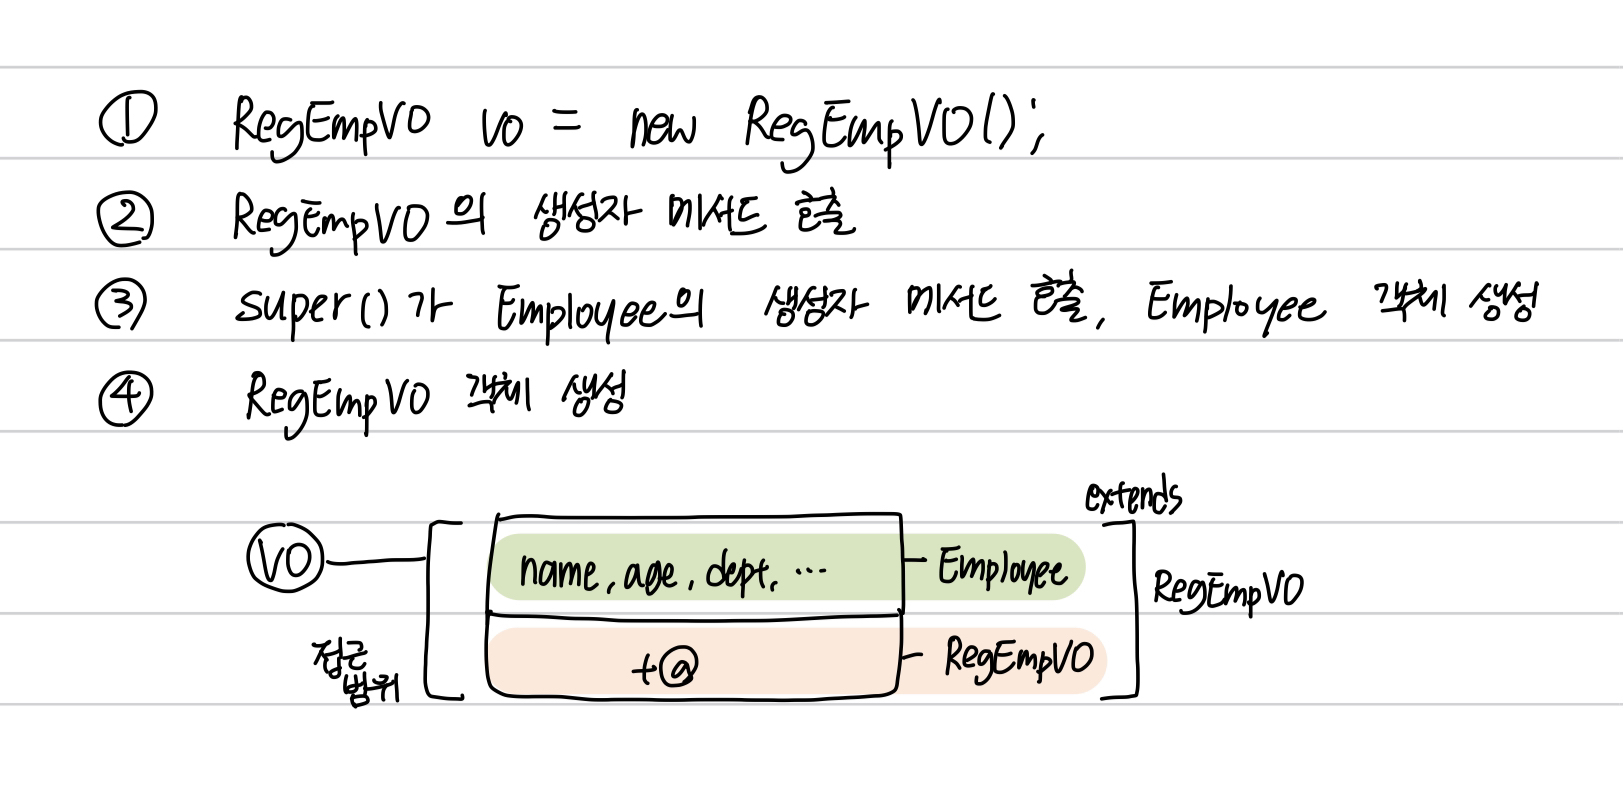 ① RegEmpVO vo = new RegEmpVO();
② RegEmpVO의 생성자 메서드 호출
③ super()가 Employee의 생성자 메서드 호출, Employee 객체 생성
④ RegEmpVO 객체 생성
extends
VO
name, age, dept, ...
Employee
RegEmpVO
접근
범위
+@
RegEmpVO